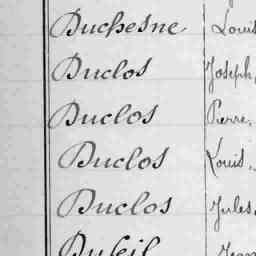 Duchesne Louis
Duclos Joseph,
Duclos Pierre,
Duclos Louis,
Duclos Jules,